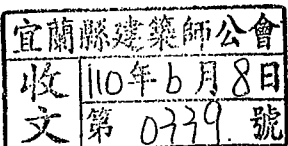 宜蘭縣建築師公會
收文
110年6月8日
第 0339. 號